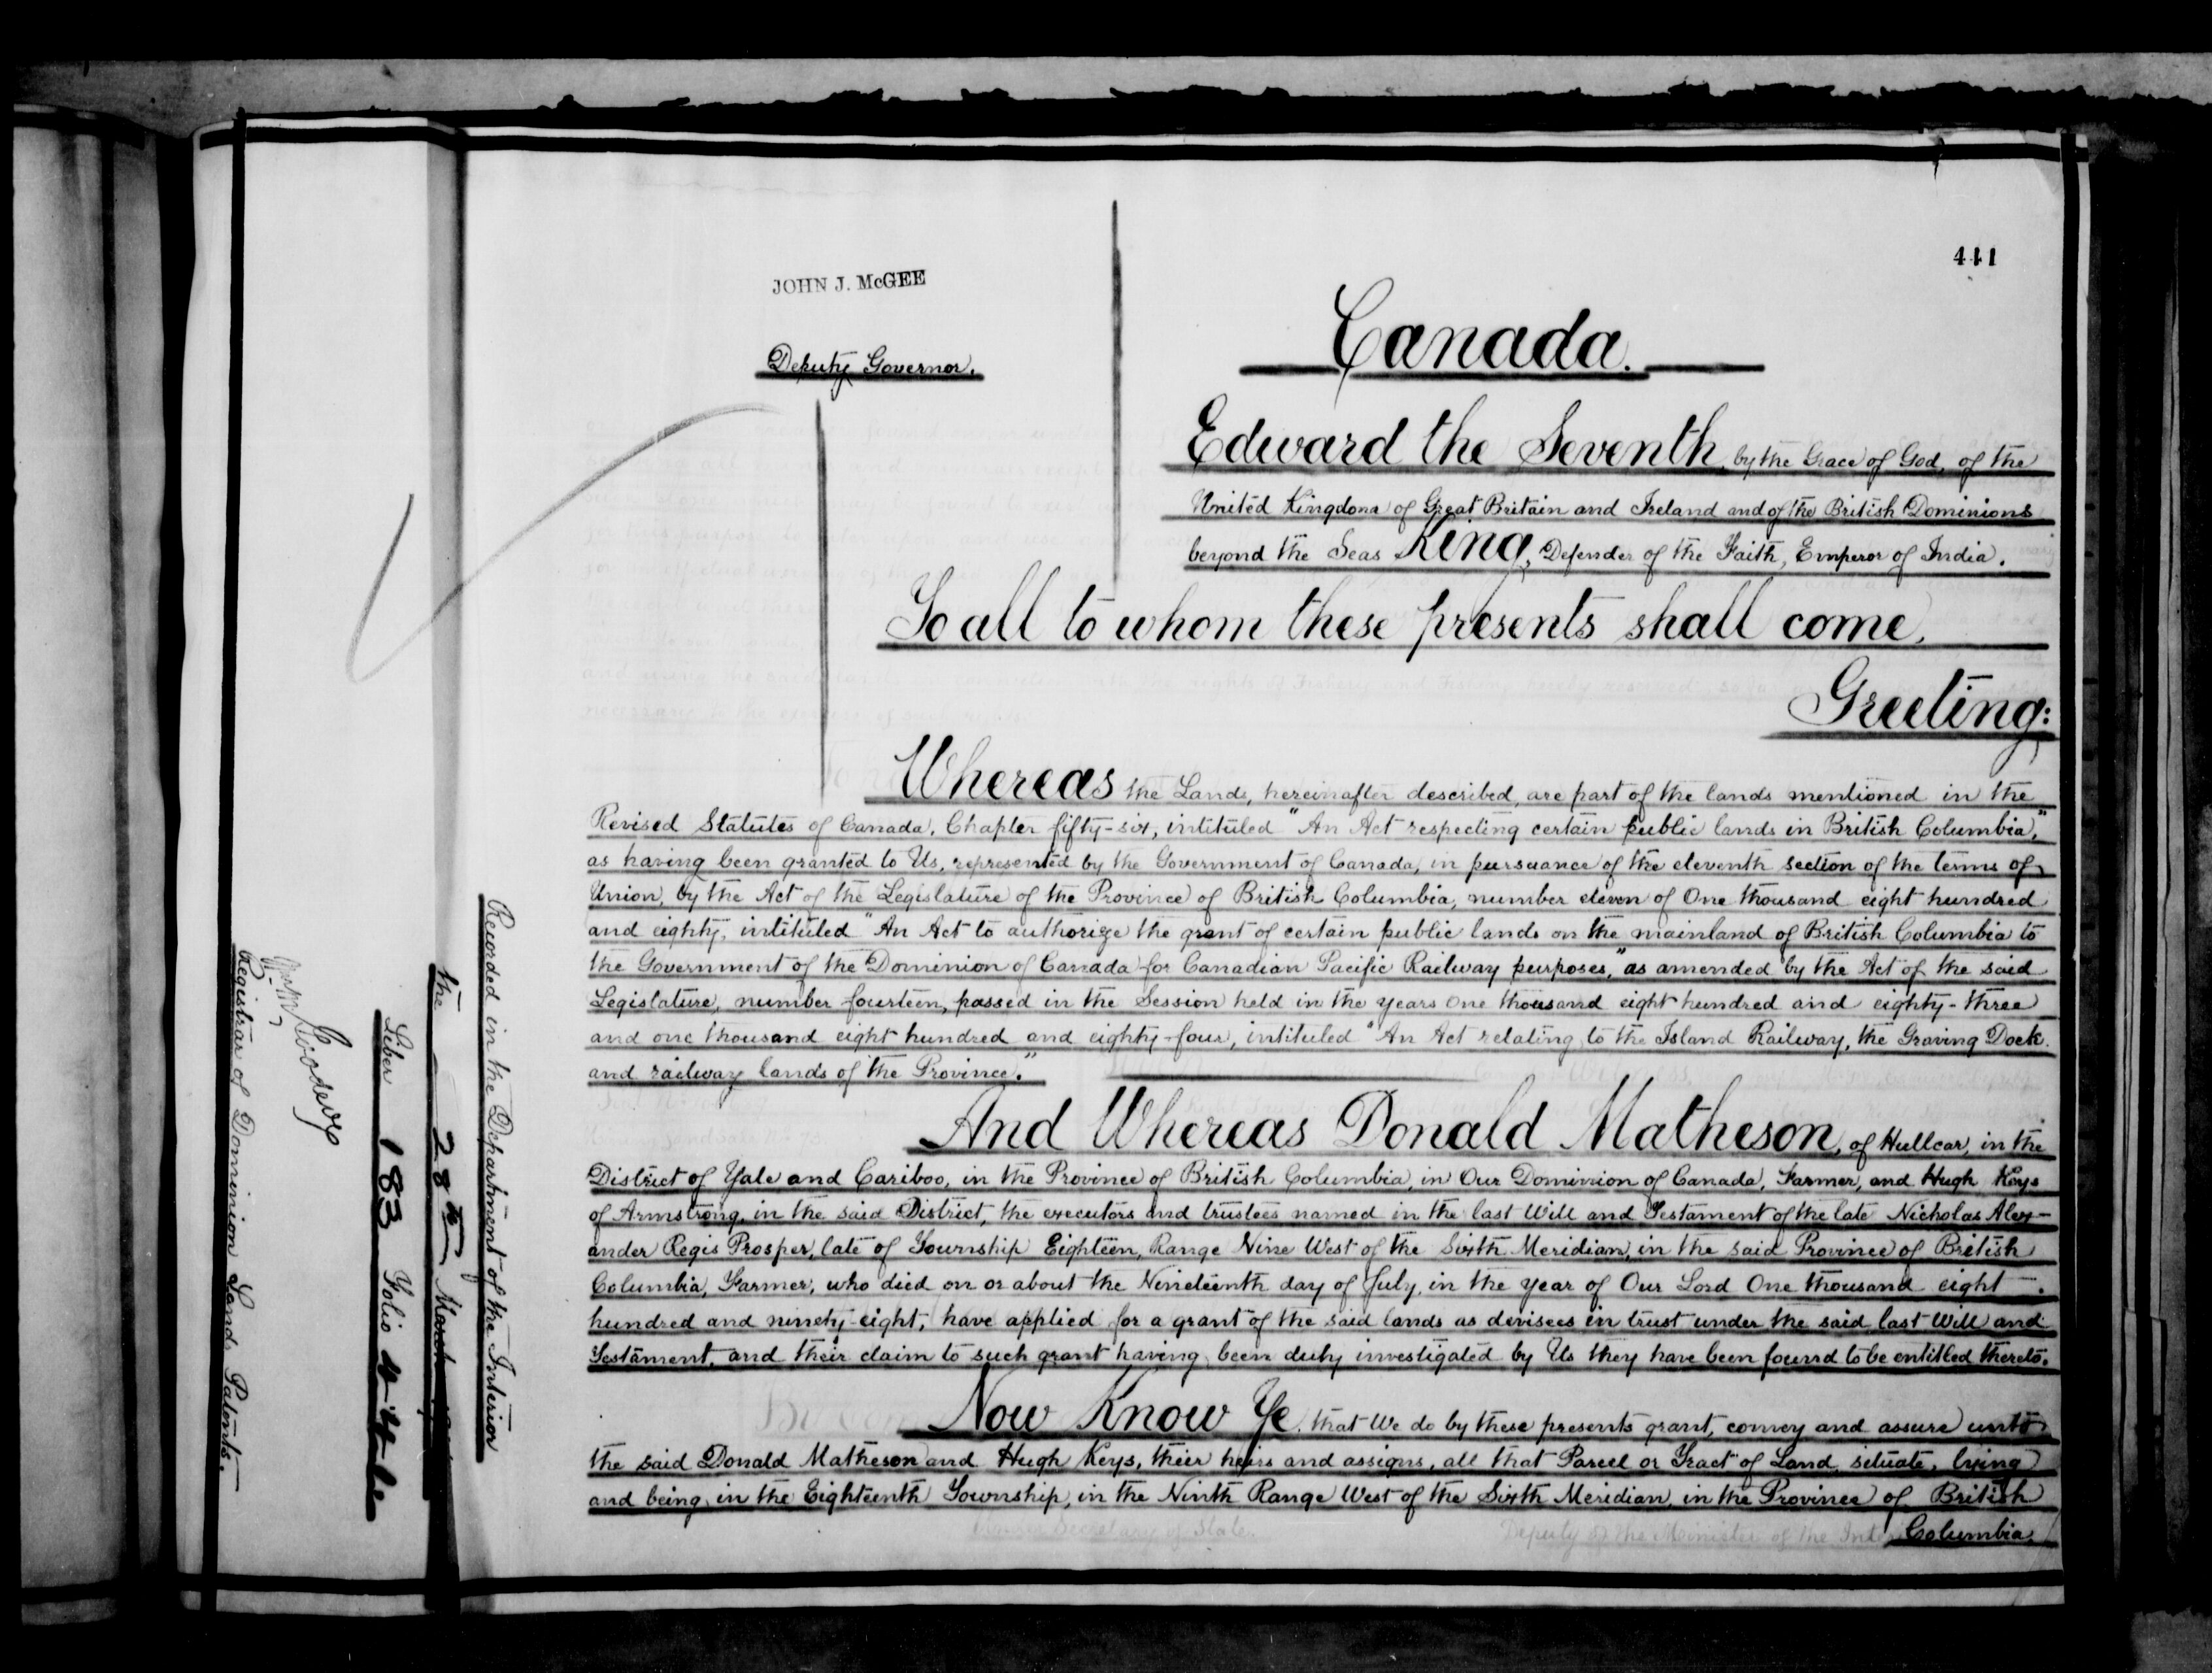 441
JOHN J. McGEE
Deputy Governor.
Canada.
Edward the Seventh, by the Grace of God, of the
United Kingdom of Great Britain and Ireland and of the British Dominions
beyond the Seas King, Defender of the Faith, Emperor of India.
To all to whom these presents shall come,
Greeting:
Whereas the Lands, hereinafter described, are part of the lands mentioned in the
Revised Statutes of Canada, Chapter fifty-six, intituled "An Act respecting certain public lands in British Columbia,"
as having been granted to Us, represented by the Government of Canada, in pursuance of the eleventh section of the terms of
Union, by the Act of the Legislature of the Province of British Columbia, number eleven of One thousand eight hundred
and eighty, intituled "An Act to authorize the grant of certain public lands on the mainland of British Columbia to
the Government of the Dominion of Canada for Canadian Pacific Railway purposes," as amended by the Act of the said
Legislature, number fourteen, passed in the Session held in the years one thousand eight hundred and eighty-three
and one thousand eight hundred and eighty-four, intituled "An Act relating to the Island Railway, the Graving Dock
and railway lands of the Province."
And Whereas Donald Matheson, of Hullcar, in the
District of Yale and Cariboo, in the Province of British Columbia, in Our Dominion of Canada, Farmer, and Hugh Keys
of Armstrong, in the said District, the executors and trustees named in the last Will and Testament of the late Nicholas Alex-
ander Regis Prosper, late of Township Eighteen, Range Nine West of the Sixth Meridian, in the said Province of British
Columbia, Farmer, who died on or about the Nineteenth day of July, in the year of Our Lord One thousand eight
hundred and ninety-eight, have applied for a grant of the said lands as devisees in trust under the said last Will and
Testament, and their claim to such grant having been duly investigated by Us they have been found to be entitled thereto.
Now Know Ye, that We do by these presents grant, convey and assure unto
the said Donald Matheson and Hugh Keys, their heirs and assigns, all that Parcel or Tract of Land, situate, lying
and being, in the Eighteenth Township, in the Ninth Range West of the Sixth Meridian, in the Province of British
Columbia,
Recorded in the Department of the Interior
the 28th March
Liber 183 Folio
Registrar of Dominion Lands Patents.